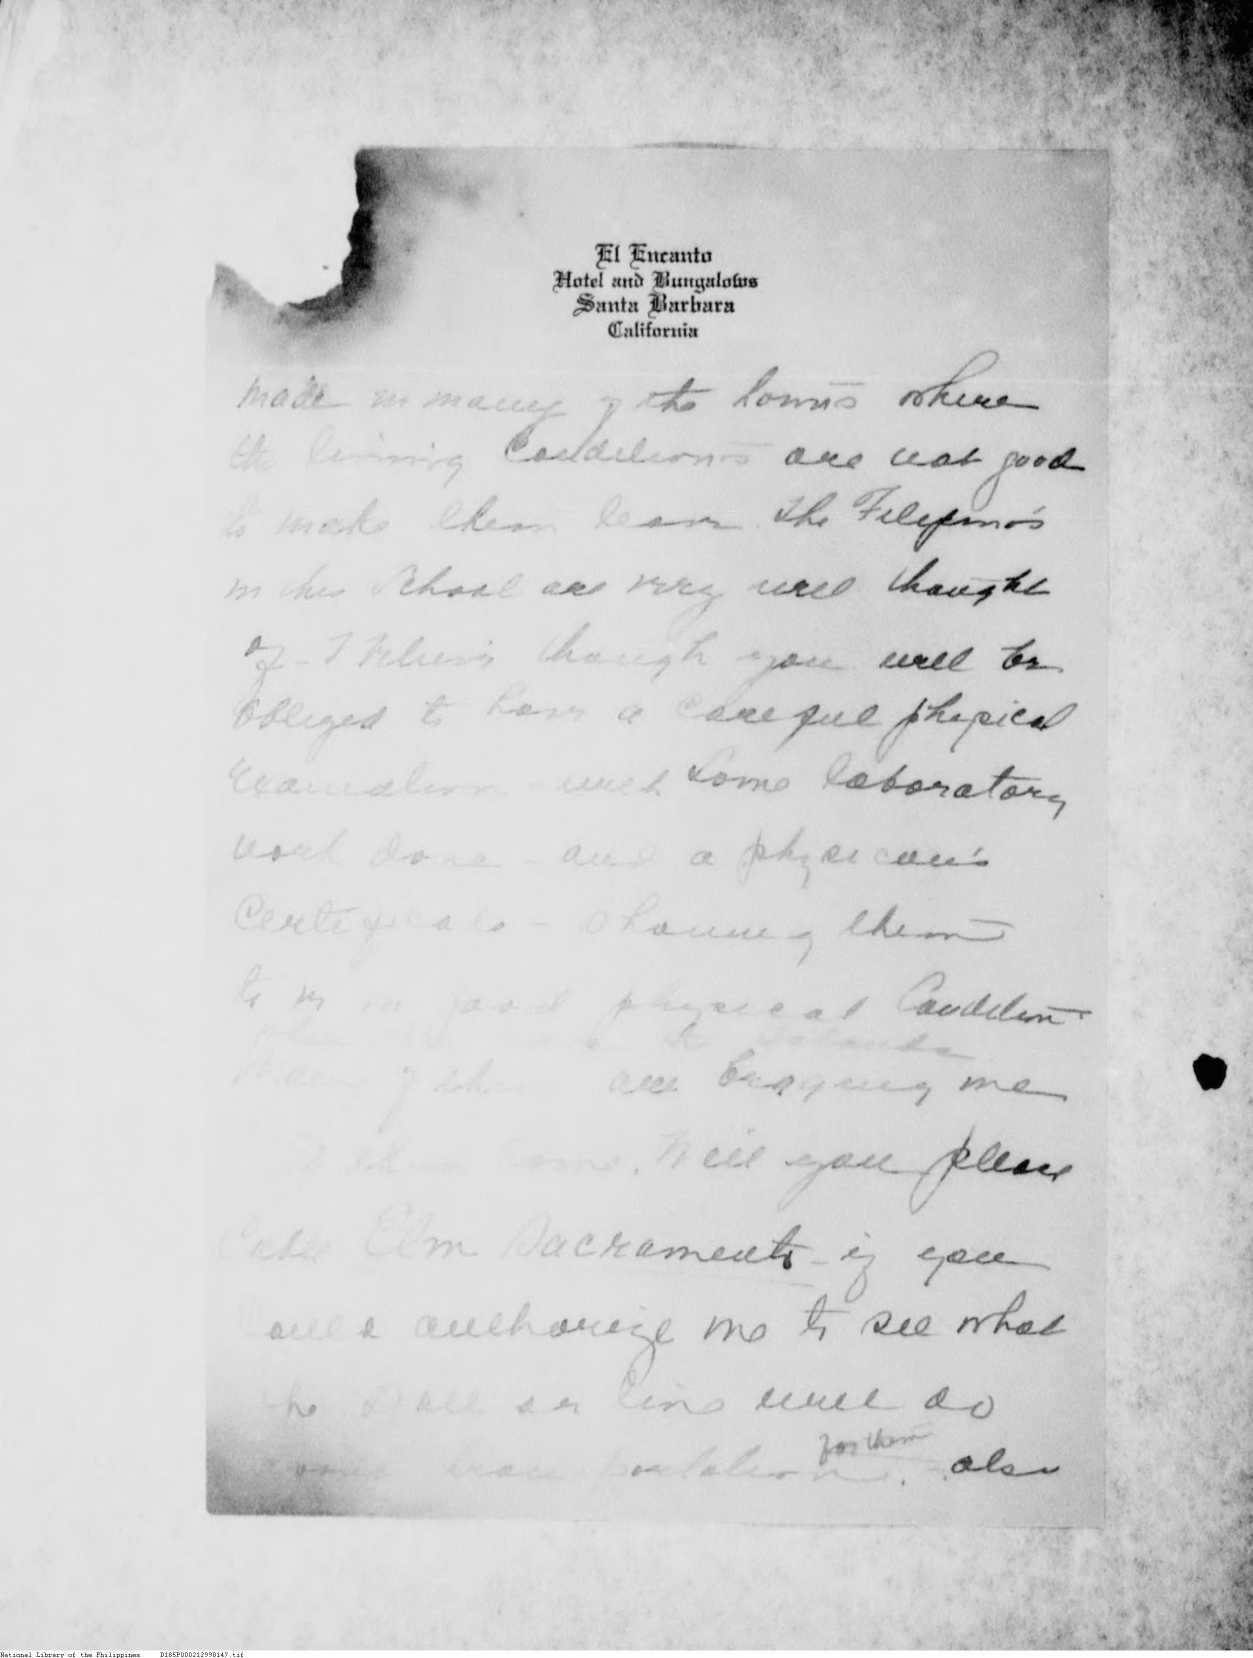 El Encanto
Hotel and Bungalows
Santa Barbara
California
made in many of the towns where
the living Conditions are not good
to make them leave. The Filipino's
in this School are very well thought
of - I believe though you will be
obliged to have a careful physical
examination - with some laboratory
work done - and a physician's
Certificate - showing them
to be in good physical Condition
to Islands
Many of them are begging me
them home. Will you please
Cable Elm Sacramento - if you
authorize me to see what
the Dollar line will do
transportation for them. also
National Library of the Philippines D185P000212990147.tif